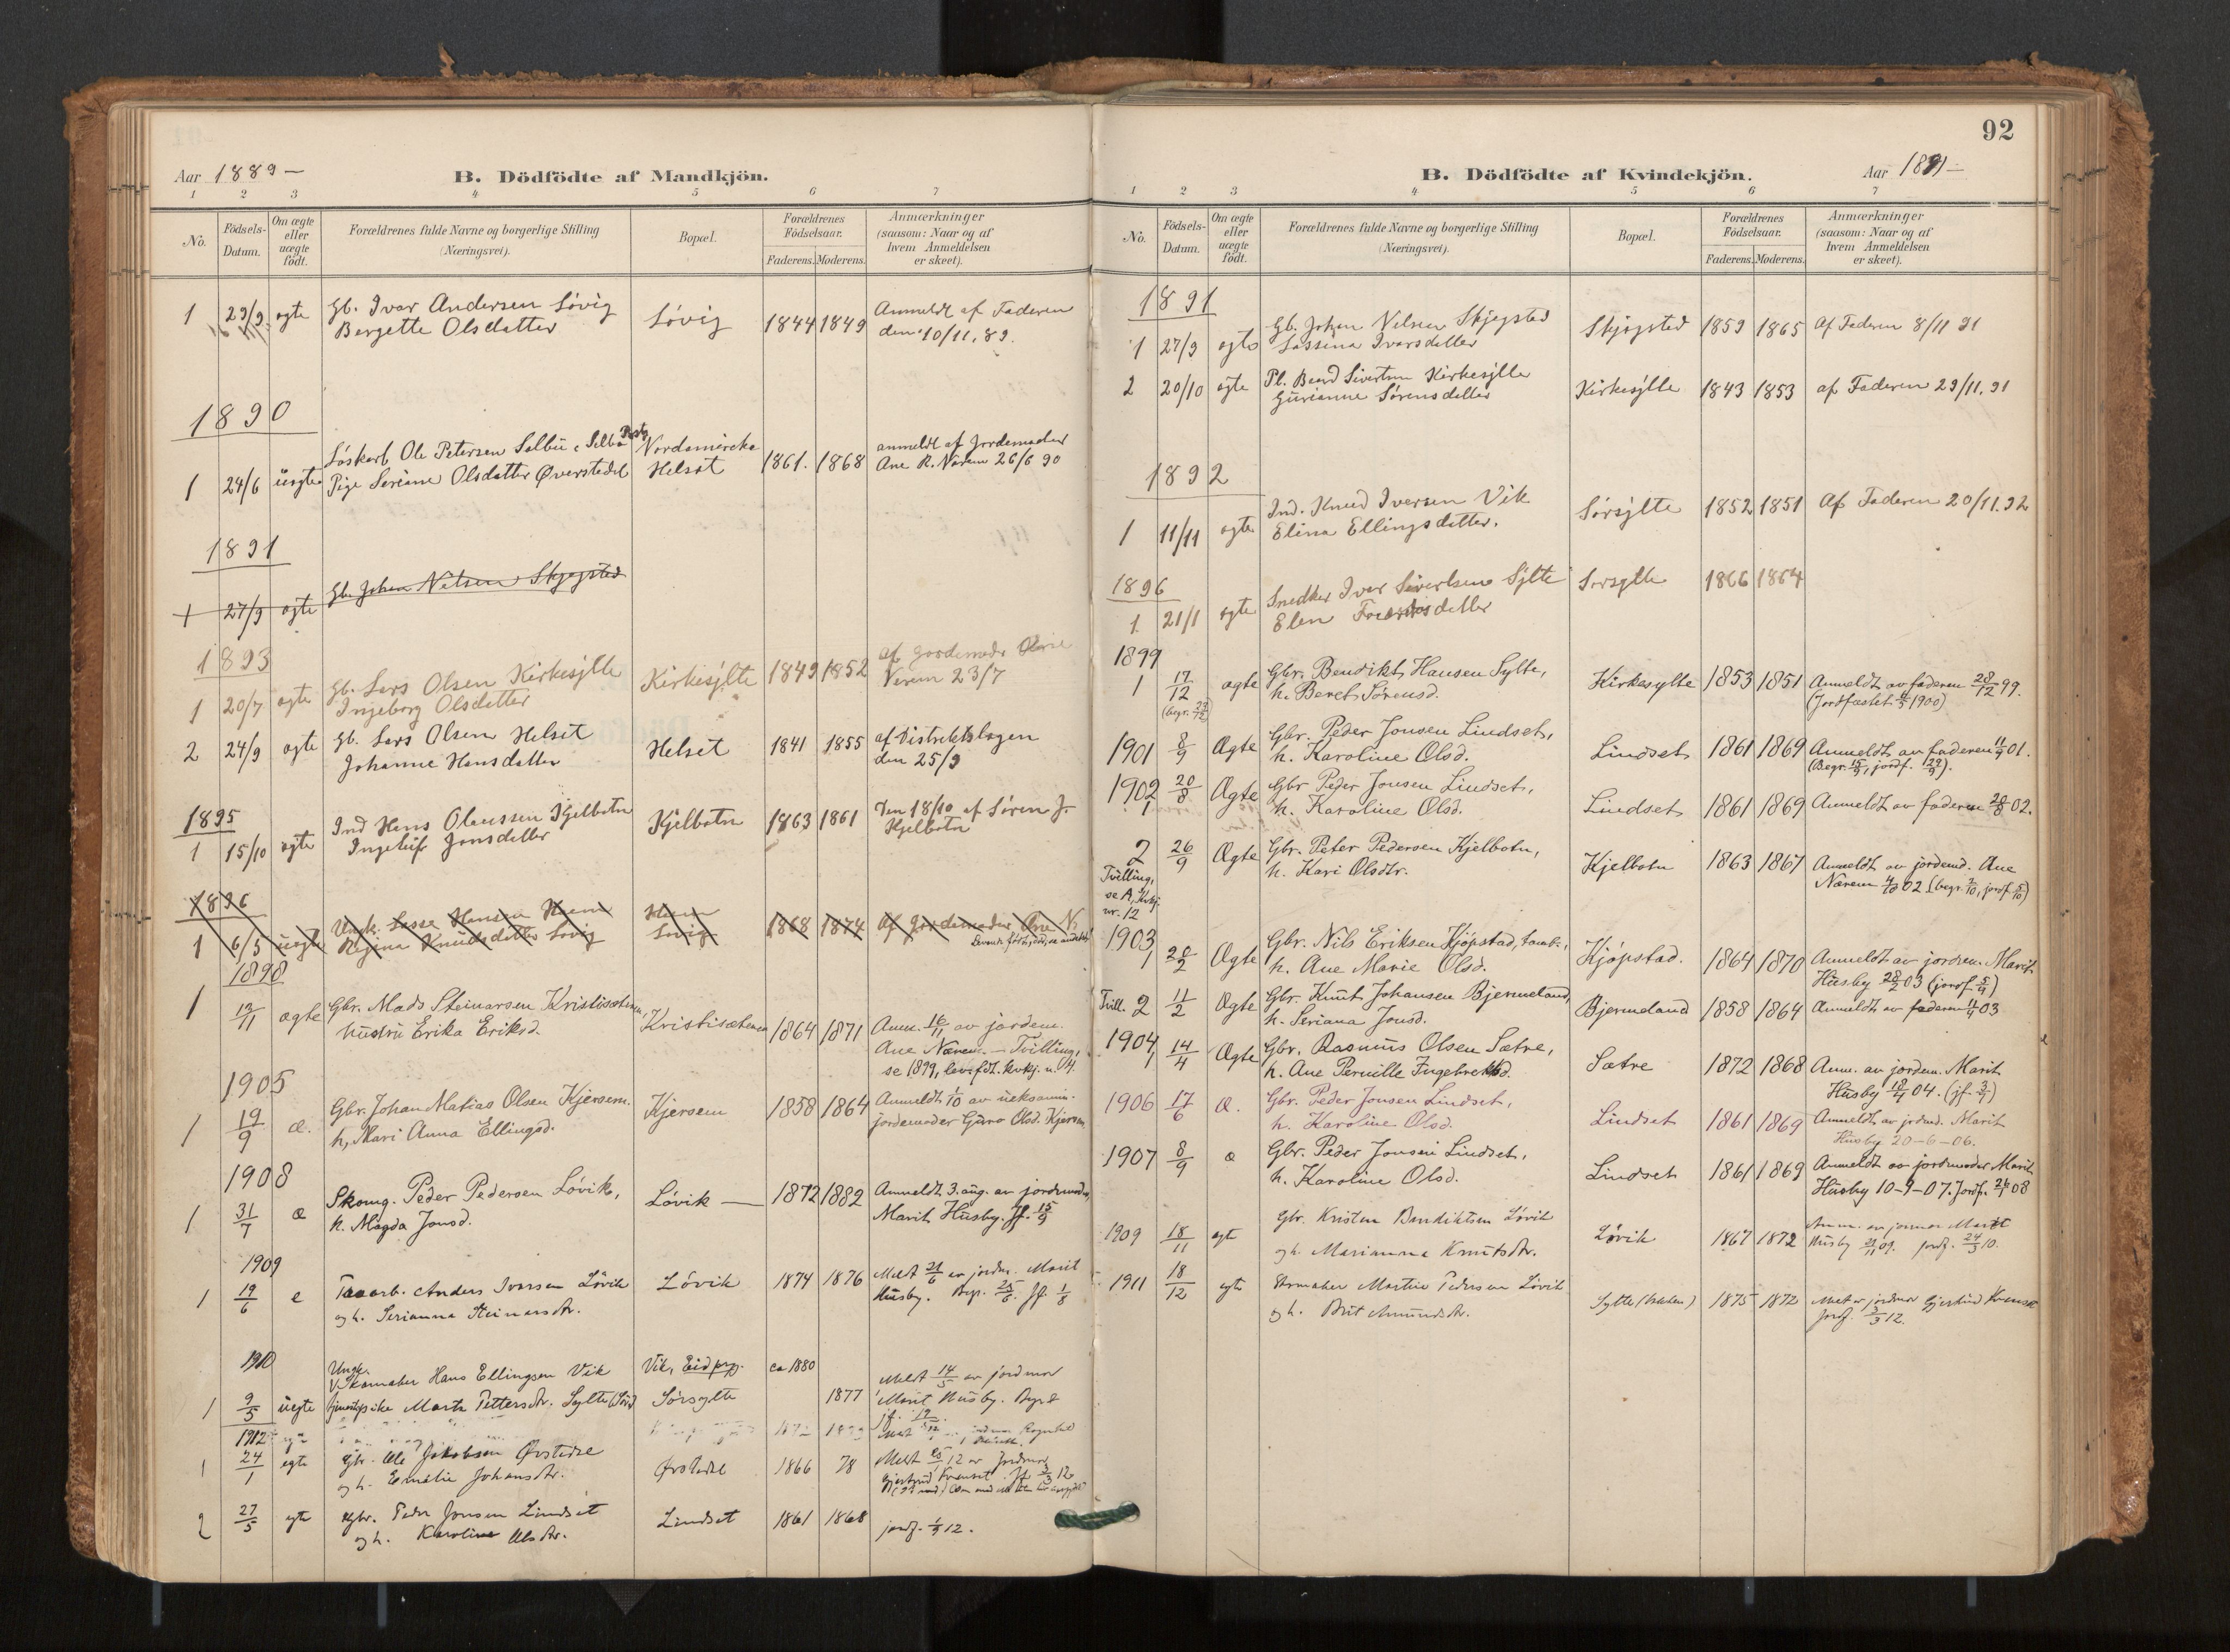 Aar 1889 —
B. Dödfödte af Mandkjön.
1 2 3 4 5 6 7
No.
Födsels-Datum.
Om ægte eller uægte født.
Forældrenes fulde Navne og borgerlige Stilling (Næringsvei).
Bopæl.
Forældrenes Fødselsaar.
Faderens. Moderens.
Anmærkninger (saasom: Naar og af hvem Anmeldelsen er skeet).
1 29/9 ægte Gb. Ivar Andersen Løvig Løvig 1844 1849 Anmeldt af Faderen
Bergette Olsdatter den 10/11.89.
1890
Løskarl Ole Petersen Selbu, Selbu Nordamerika anmeldt af Jordemoder
1 24/6 uægte Pige Seriane Olsdatter Øverstedal Helset 1861. 1868 Ane R. Nærem 26/6 90
1891
1 27/9 ægte Gb. Johan Nelsen Skjegsted
1893
1 20/7 ægte Gb. Lars Olsen Kirkesylte Kirkesylte 1849 1852 af Jordemoder
Ingeborg Olsdatter Nærem 23/7
2 24/9 ægte Gb. Lars Olsen Helset Helset 1841 1855 af Distriktslægen
Johanne Hansdatter den 25/9
1895
1 15/10 ægte Ind Hans Olaussen Kjelbotn Kjelbotn 1863 1861 Den 18/10 af Søren J.
Jonsdatter Kjelbotn
1896
Ungk. Lasse Hansen
1 6/5 uægte Regina Knudsdatter Løvig Løvig 1868 1874 Af Jordemoder Ane N.
1898
1 12/11 ægte Gbr. Mads Steinarsen Kristisæteren, Kristisæteren 1864 1871 Anm. 16/11 av jordem.
hustru Erika Eriksd. Ane Nærem. — Tvilling,
se 1899, lev. fdt. kvkj. n. 4.
1905
1 19/9 æ. Gbr. Johan Matias Olsen Kjersem. Kjersem 1858 1864 Anmeldt 1/10 av ueksamin.
h, Mari Anna Ellingsd. jordemoder Guro Olsd. Kjersem
1908
1 31/7 æ Skomg. Peder Pedersen Løvik, Løvik — 1872 1882 Anmeldt 3. aug. av jordmoder
h. Magda Jonsd. Marit Husby. Jf. 15/9
1909
1 19/6 e Anders Iversen Løvik Løvik 1874 1876 Meldt 21/6 av jordm. Marit
og h. Serianna Steinarsdtr. Husby. Begr. 25/6. Jf. 1/8
1910
Ungk.
Skomaker Hans Ellingsen Vik Vik, Eid prg. ca 1880 Meldt 14/5 av jordmor
1 9/5 uegte Marta Pettersdtr. Sylte Sørsylte 1877 Marit Husby. Begr &
jf. 19
1912
1 24/1 egte Gbr. Ole Jakobsen Ørstedal Ørstedal 1866 78 Meldt 25/1 12 av Jordmor
og h. Emelie Johansdtr. Gjertrud Kvenset. Jf. 3/3 12
2 27/5 egte Gbr. Peder Jonsen Lindset Lindset 1861 1868 jordf. 1/9 12.
og h. Karoline Olsdtr.
92
B. Dödfödte af Kvindekjön.
Aar 1891 —
1 2 3 4 5 6 7
No.
Födsels-Datum.
Om ægte eller uægte født.
Forældrenes fulde Navne og borgerlige Stilling (Næringsvei).
Bopæl.
Forældrenes Fødselsaar.
Faderens. Moderens.
Anmærkninger (saasom: Naar og af hvem Anmeldelsen er skeet).
1891
1 27/9 ægte Gb. Johan Nelsen Skjegsted Skjegsted 1859 1865 Af Faderen 8/11 91
Lassina Ivarsdatter
2 20/10 ægte Pl. Beard Sivertsen Kirkesylte Kirkesylte 1843 1853 af Faderen 29/11.91
Gurianne Sørensdatter
1892
1 11/11 ægte Ind. Knud Iversen Vik Sørsylte 1852 1851 Af Faderen 20/11.92
Elina Ellingsdatter.
1896
1. 21/1 ægte Snedker Iver Sivertsen Sylte Sørsylte 1866 1864
Elen
1899
1 17/12 ægte Gbr. Bendikt Hansen Sylte, Kirkesylte 1853 1851 Anmeldt av faderen 28/12 99.
(begr. 23/12) h. Beret Sørensd. (Jordfæstet 1900)
1901 8/9 Ægte Gbr. Peder Jonsen Lindset, Lindset 1861 1869 Anmeldt av faderen 11/9 01.
h. Karoline Olsd. (Begr. 15/9, jordf. 29/9).
1902
1 20/8 Ægte Gbr Peder Jonsen Lindset, Lindset 1861 1869 Anmeldt av faderen 28/8 02.
h. Karoline Olsd.
2 26/9 Ægte Gbr. Peter Pedersen Kjelbotn, Kjelbotn 1863 1867 Anmeldt av jordemd. Ane
Tvilling, se A, kvkj. nr. 12 h. Kari Olsdtr. Nærem 4/10 02 (begr. 3/10, jordf. 5/10)
1903
1 28/2 Ægte Gbr. Nils Eriksen Kjöpstad, Kjöpstad. 1864 1870 Anmeldt av jordem. Marit
h. Ane Marie Olsd. Husby 28/2 03 (jordf. 5/4)
Tvill. 2 11/2 Ægte Gbr. Knut Johansen Bjermeland, Bjermeland 1858 1864 Anmeldt av faderen 11/4 03
h. Seriana Jonsd.
1904
1 14/4 Ægte Gbr. Rasmus Olsen Sætre, Sætre 1872 1868 Anm. av jordem. Marit
h. Ane Pernille Ingebrektsd. Husby 18/4 04. (jf. 3/7)
1906 17/6 Æ. Gbr. Peder Jonsen Lindset, Lindset 1861 1869 Anmeldt av jordmd. Marit
h. Karoline Olsd. Husby 20-6-06.
1907 8/9 æ Gbr. Peder Jonsen Lindset, Lindset 1861 1869 Anmeldt av jordmoder Marit
h. Karoline Olsd. Husby 10-9-07. Jordf. 26/1 08
1909 18/11 egte Gbr. Kristen Bendiktsen Løvik Løvik 1867 1872 Anm. av jormor Marit
og h. Marianna Knutsdtr. Husby 21/11 09. jordf. 24/3 10.
1911 18/12 egte Skomaker Martin Pedersen Løvik Sylte 1875 1872 Meldt av jordmor Gjertrud Kvenset
og h. Brit Amundsdtr. jordf. 3/3 12.